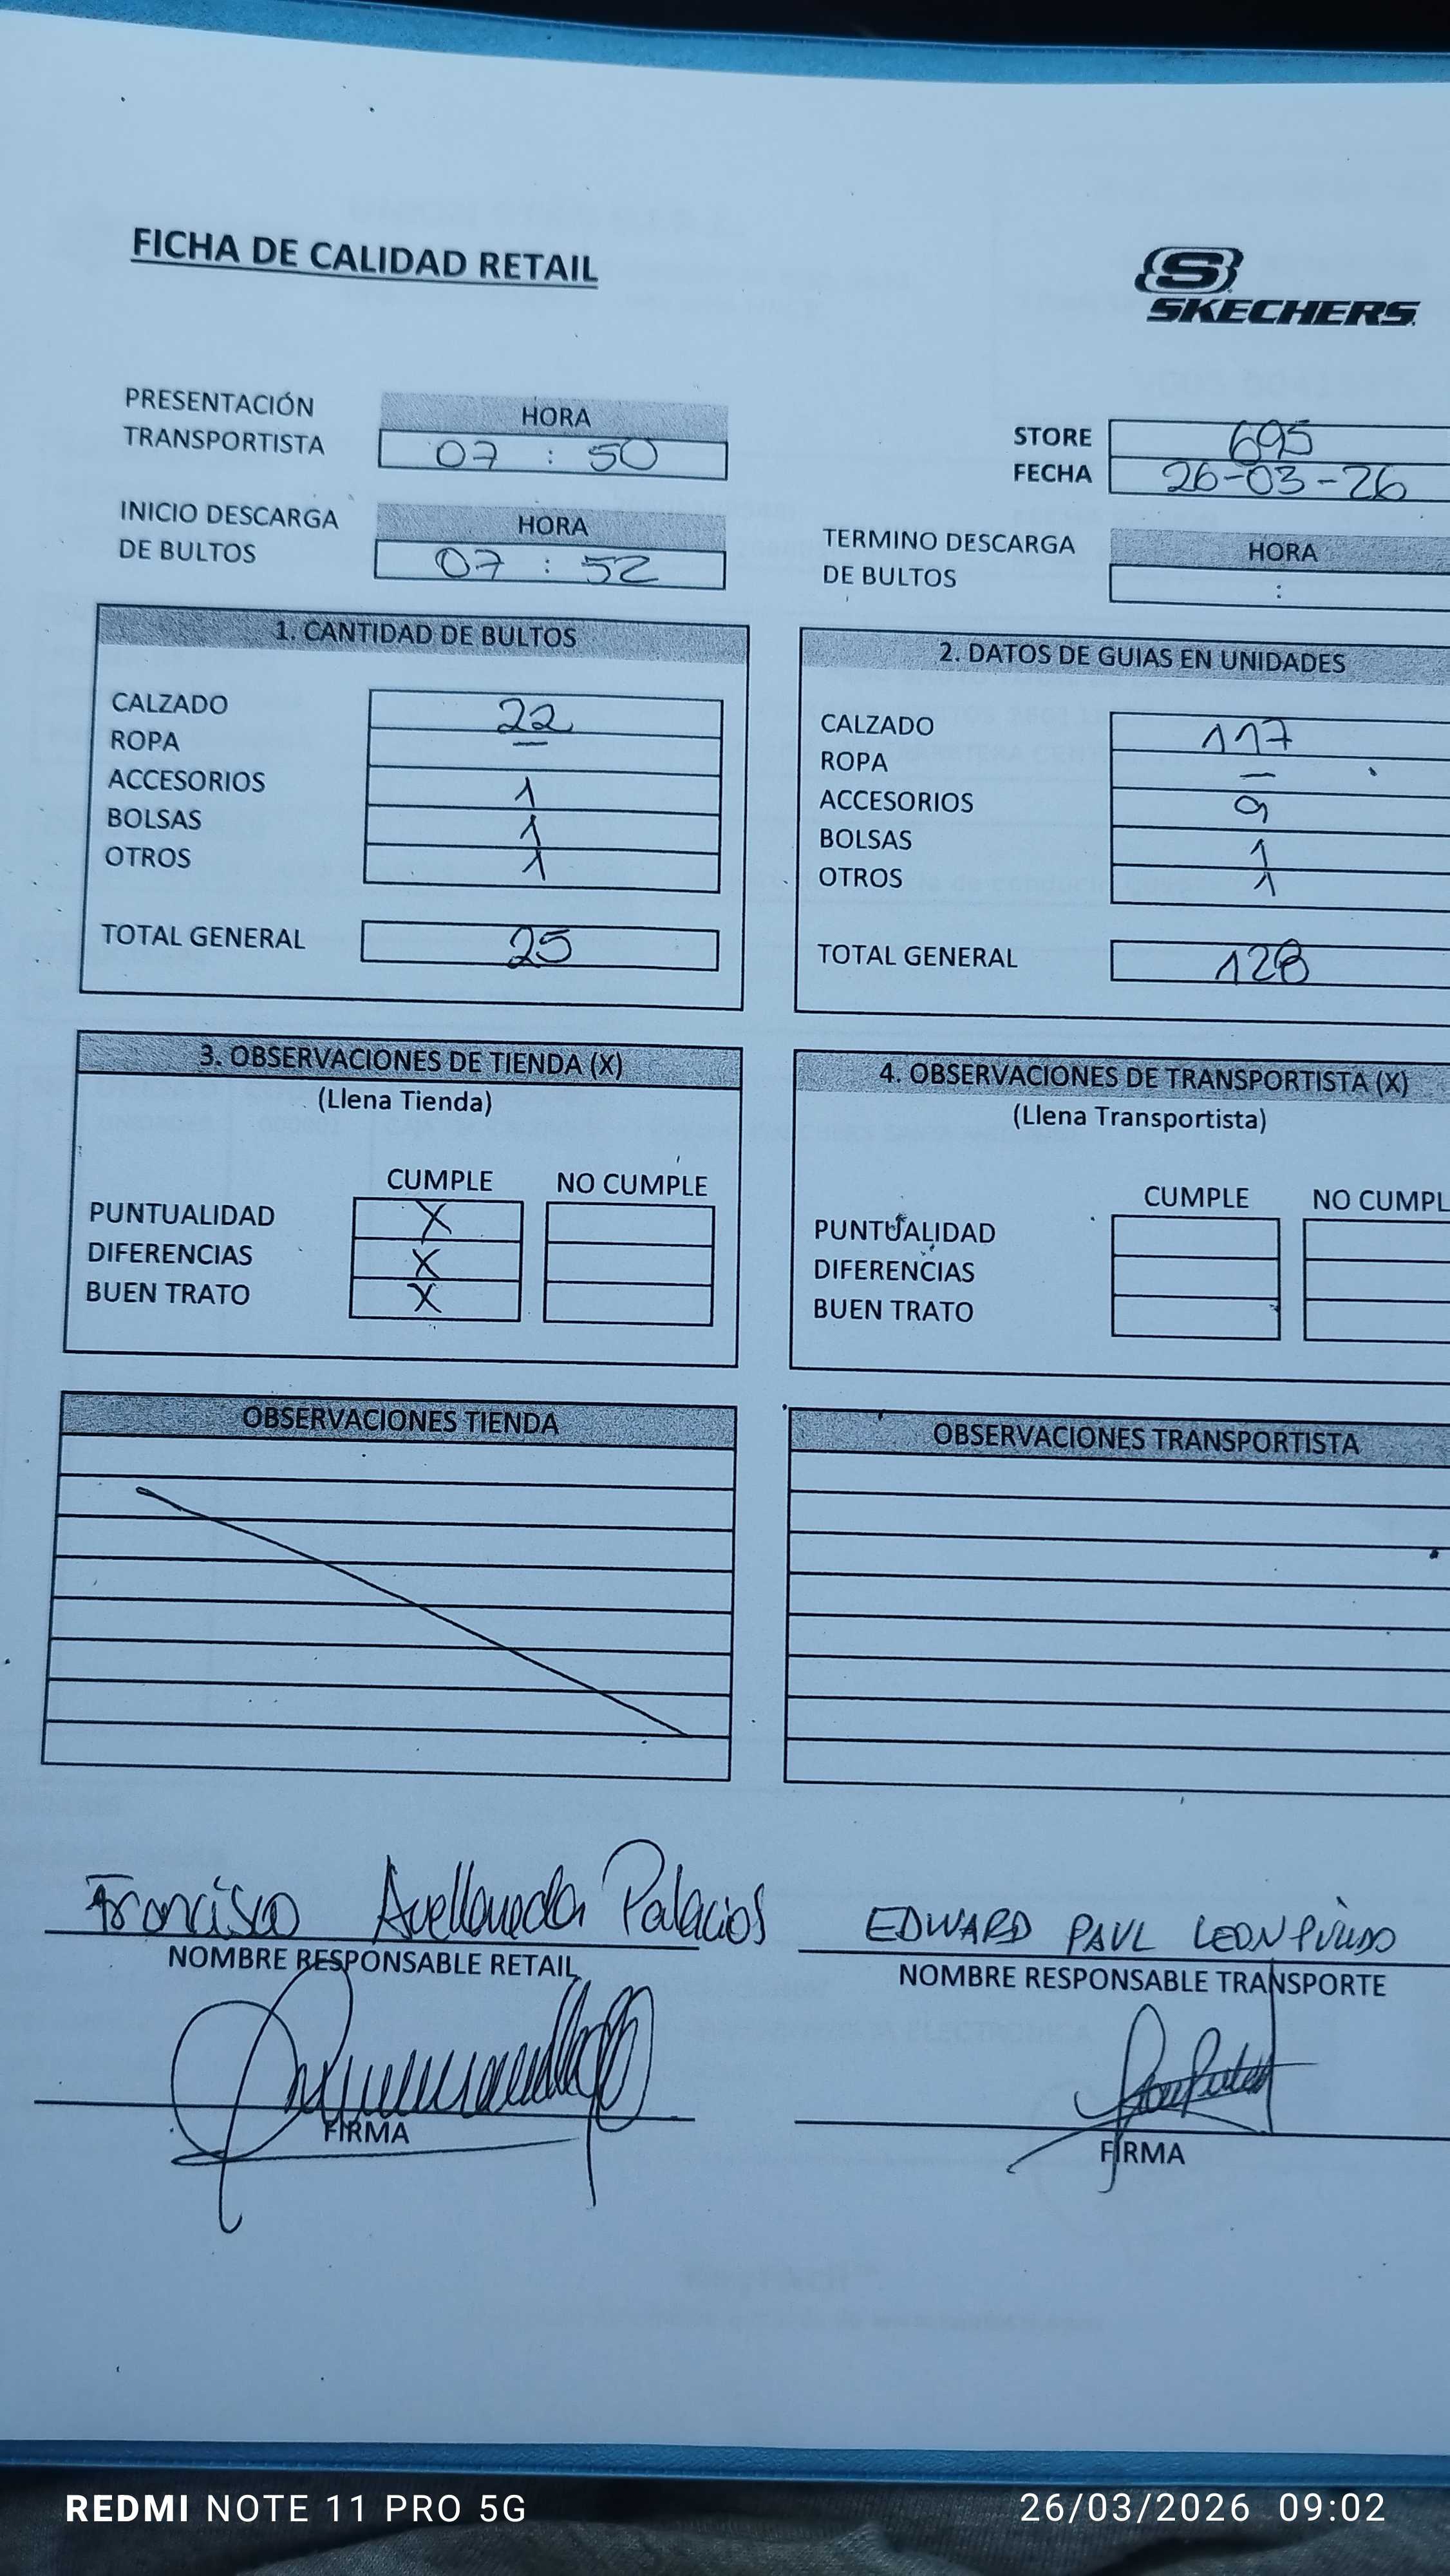 FICHA DE CALIDAD RETAIL
S
SKECHERS
PRESENTACIÓN TRANSPORTISTA
HORA
07 : 50
STORE 695
FECHA 26-03-26
INICIO DESCARGA DE BULTOS
HORA
07 : 52
TERMINO DESCARGA DE BULTOS
HORA
:
1. CANTIDAD DE BULTOS
CALZADO 22
ROPA —
ACCESORIOS 1
BOLSAS 1
OTROS 1
TOTAL GENERAL 25
2. DATOS DE GUIAS EN UNIDADES
CALZADO 117
ROPA —
ACCESORIOS 9
BOLSAS 1
OTROS 1
TOTAL GENERAL 128
3. OBSERVACIONES DE TIENDA (X)
(Llena Tienda)
CUMPLE NO CUMPLE
PUNTUALIDAD X
DIFERENCIAS X
BUEN TRATO X
4. OBSERVACIONES DE TRANSPORTISTA (X)
(Llena Transportista)
CUMPLE NO CUMPL
PUNTUALIDAD
DIFERENCIAS
BUEN TRATO
OBSERVACIONES TIENDA
OBSERVACIONES TRANSPORTISTA
Francisco Avellaneda Palacios
NOMBRE RESPONSABLE RETAIL
FIRMA
EDWARD PAUL LEON
NOMBRE RESPONSABLE TRANSPORTE
FIRMA
REDMI NOTE 11 PRO 5G
26/03/2026 09:02